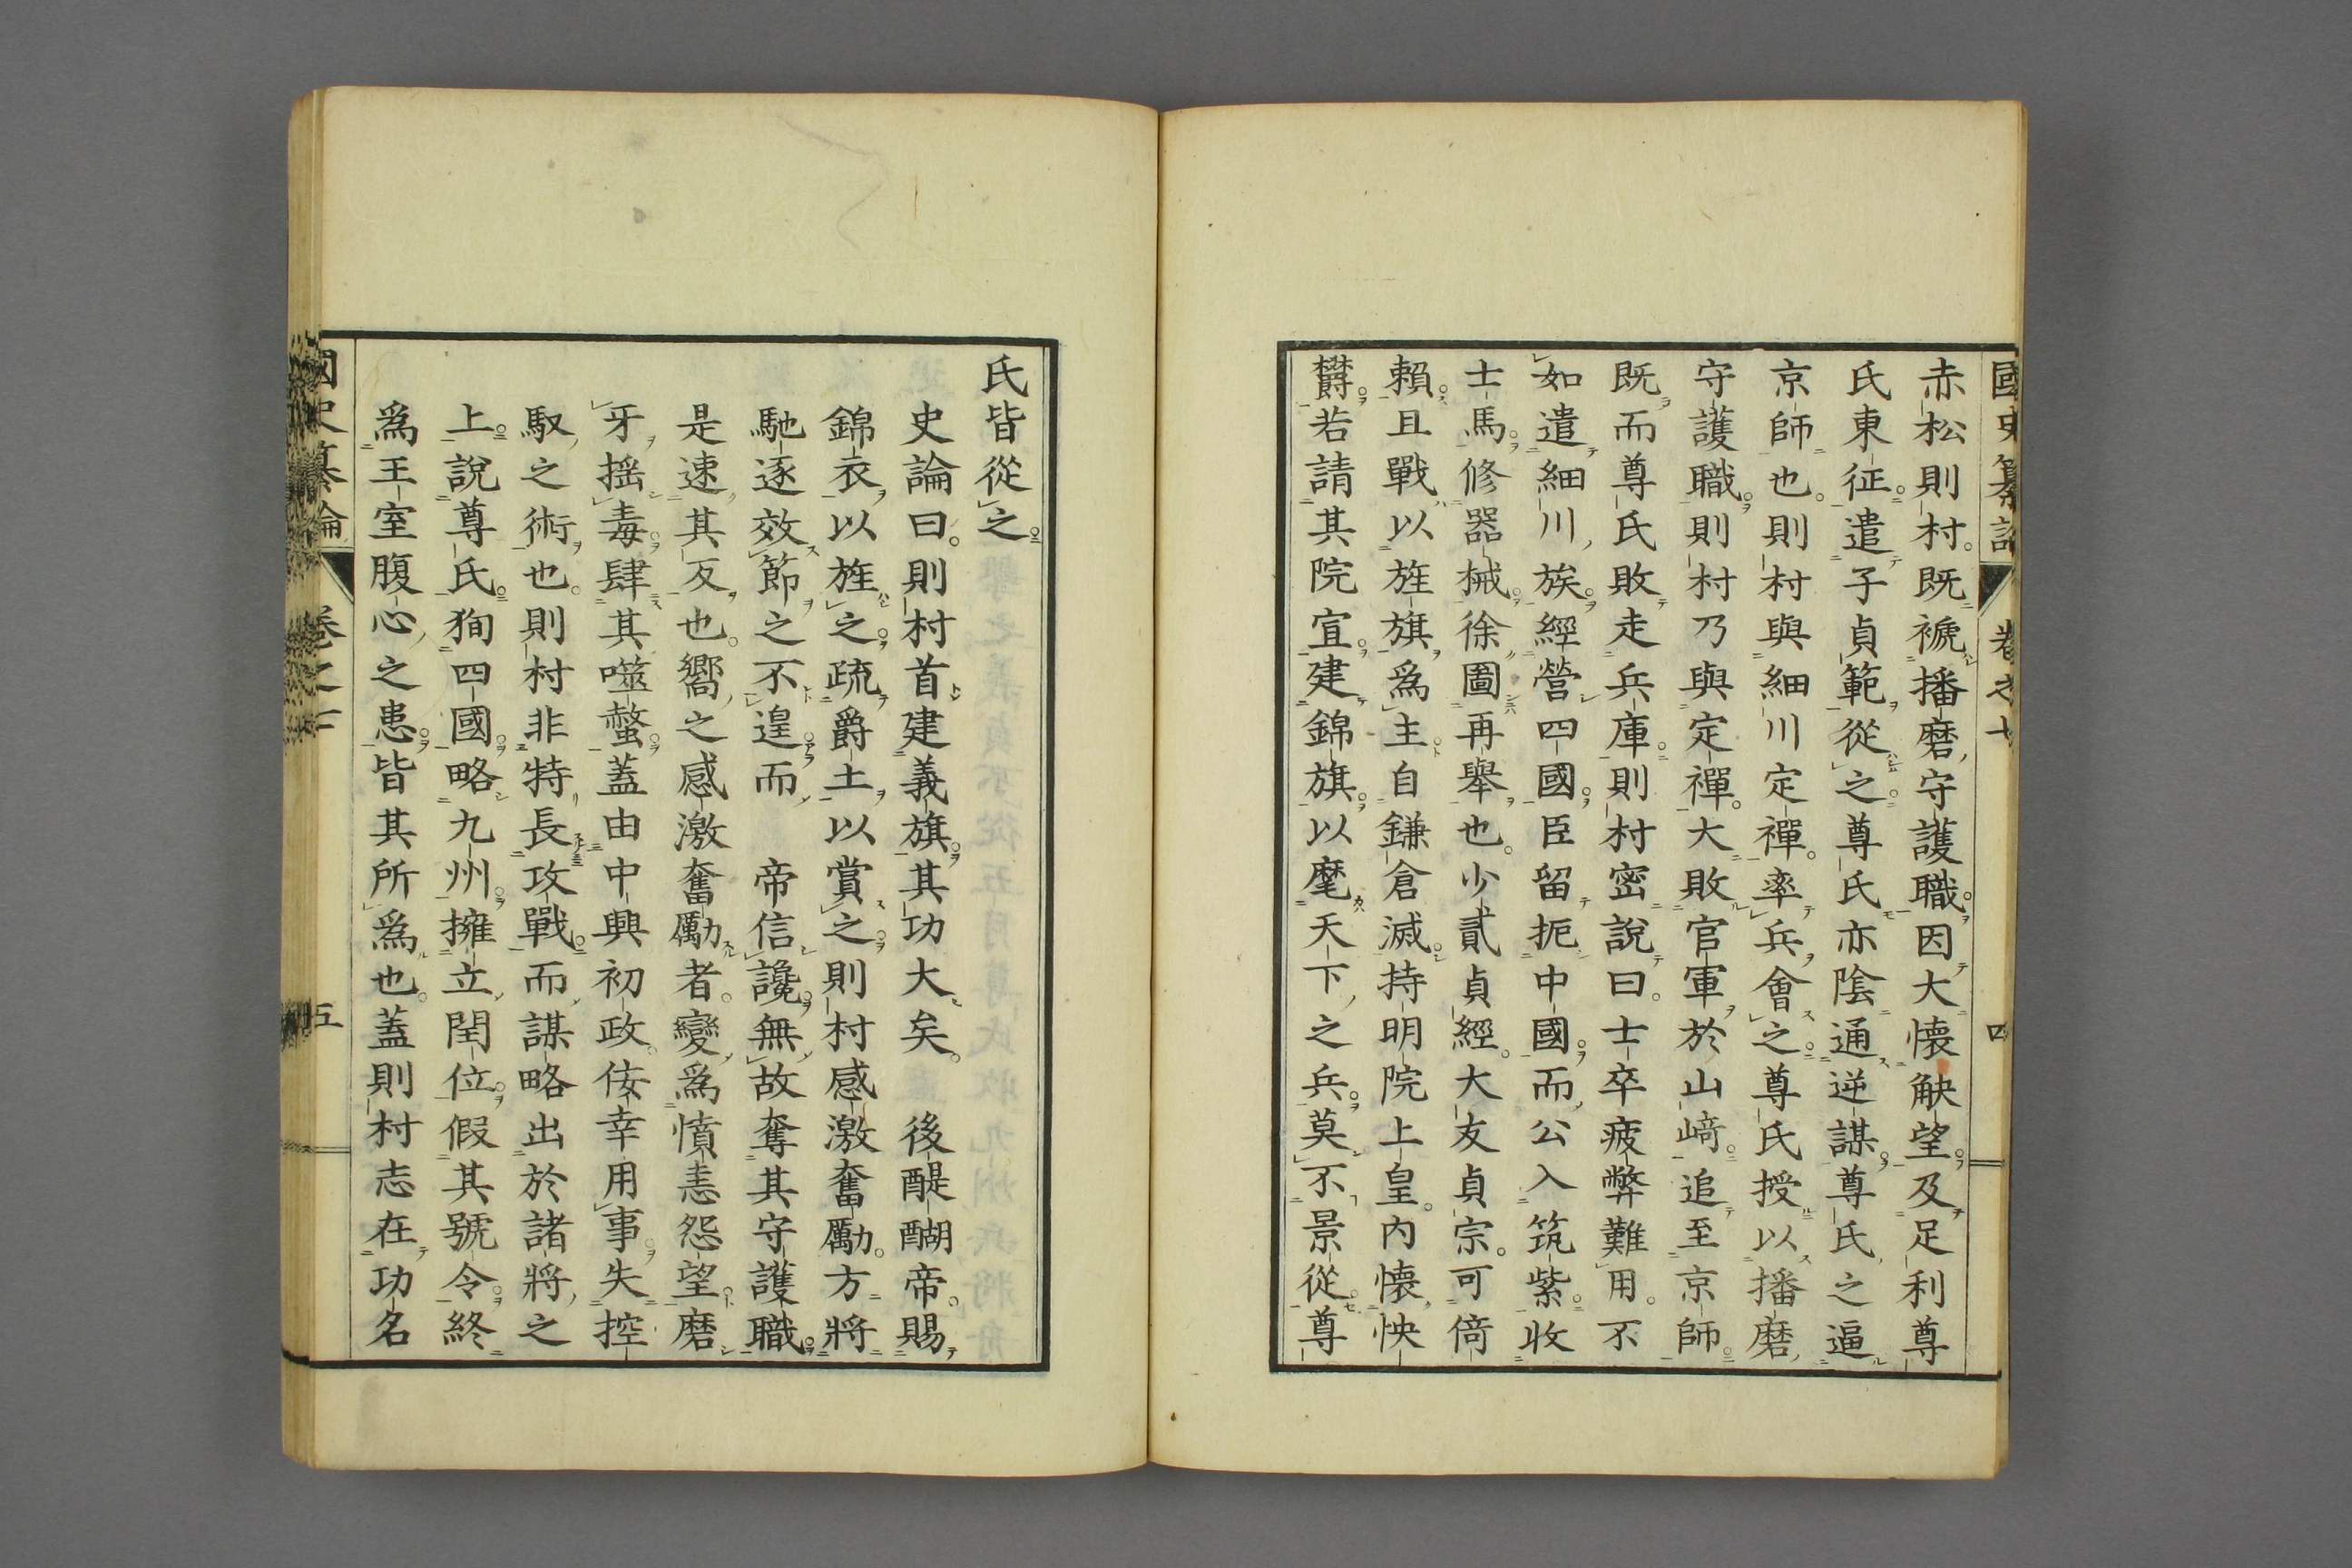 國史纂論 卷之七 四
赤松則村。既褫播磨守護職。因大懐觖望。及足利尊
氏東征。遣子貞範從之。尊氏亦陰通逆謀。尊氏之逼
京師也。則村與細川定禪。率兵會之。尊氏授以播磨
守護職。則村乃與定禪。大敗官軍於山﨑。追至京師。
既而尊氏敗走兵庫。則村密說曰。士卒疲弊難用。不
如遣細川族。經營四國。臣留扼中國。而公入筑紫。收
士馬。修器械。徐圖再舉也。少貳貞經。大友貞宗。可倚
賴。且戰以旌旗爲主。自鎌倉滅。持明院上皇。内懐怏
欝。若請其院宣。建錦旗。以麾天下之兵。莫不景從。尊
氏皆從之。
史論曰。則村首建義旗。其功大矣。 後醍醐帝。賜
錦衣以旌之。疏爵土以賞之。則村感激奮勵。方將
馳逐效節之不遑。而 帝信讒。無故奪其守護職。
是速其反也。嚮之感激奮勵者。變爲憤恚怨望。磨
牙搖毒。肆其噬螫。蓋由中興初政。倿幸用事。失控
馭之術也。則村非特長攻戰。而謀略出於諸將之
上。說尊氏。狥四國。略九州。擁立閏位。假其號令。終
爲王室腹心之患。皆其所爲也。蓋則村志在功名
國史纂論 卷之七 五